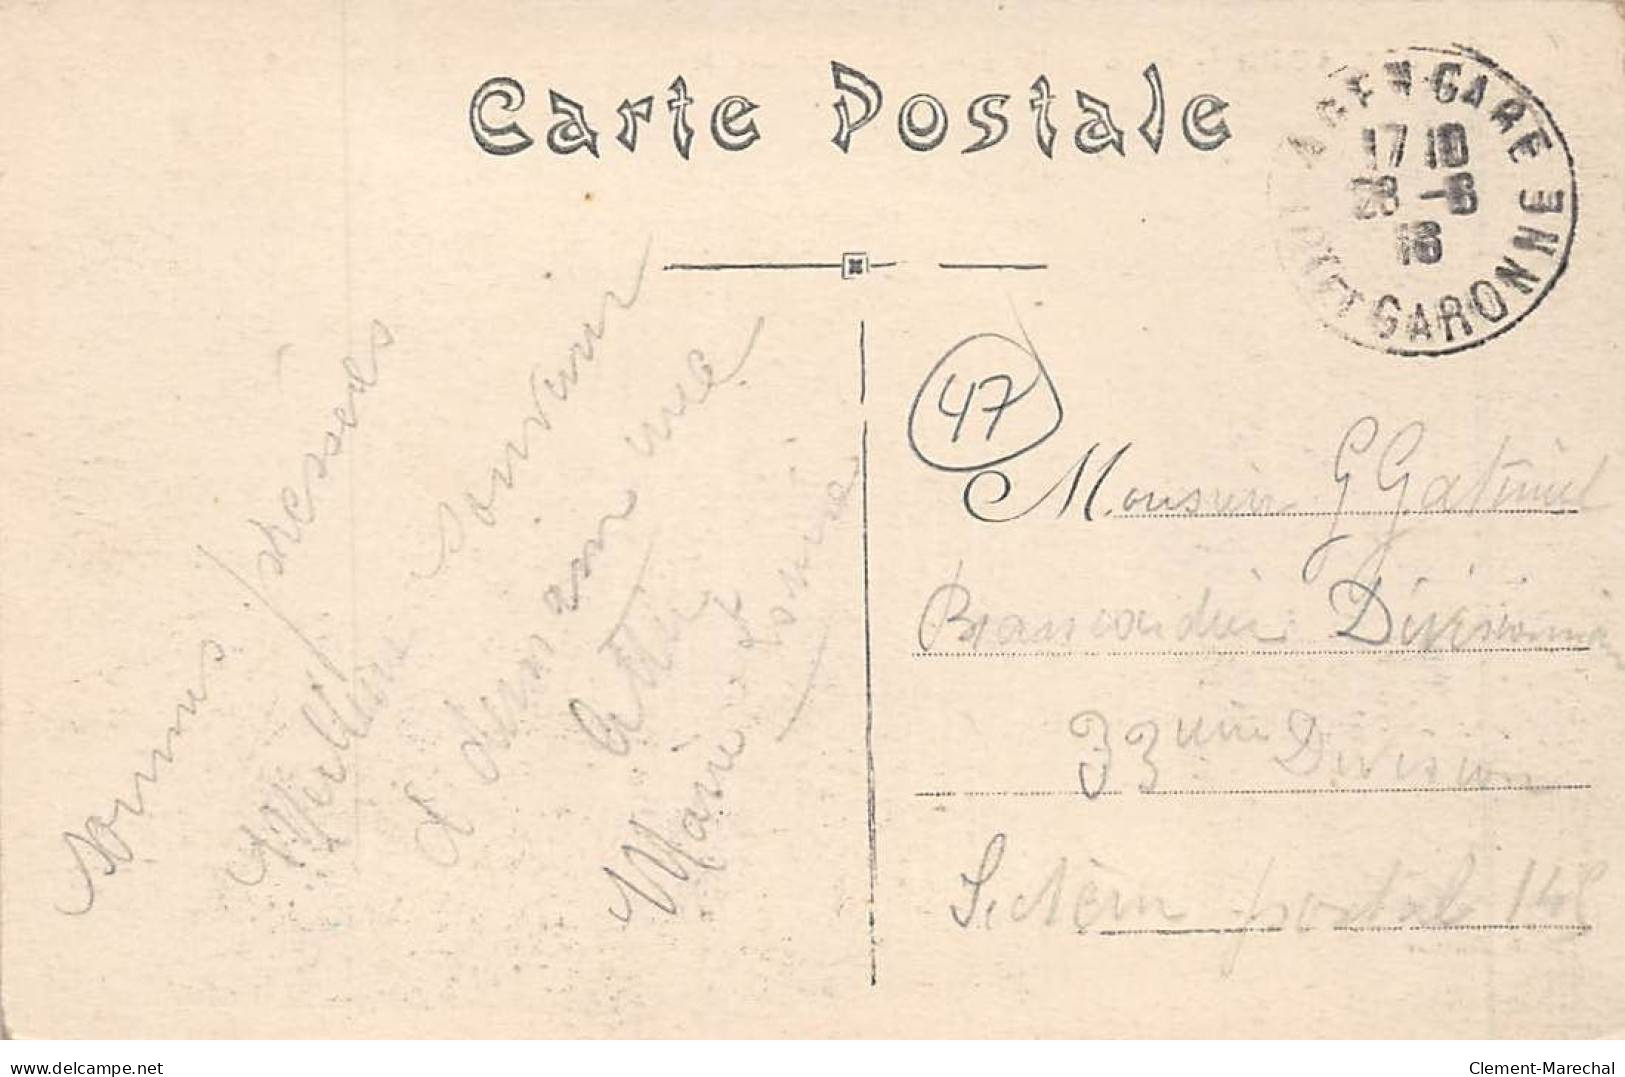 Carte Postale
AGEN-GARE
17 10
28 -6
16
LOT ET GARONNE
47
sommes pressées
Meilleur souvenir
à demain une
lettre
Marie Louise
Monsieur G Gatimel
Brancardier Divisionnaire
33ème Division
Secteur postal 148
www.delcampe.net
Clement-Marechal